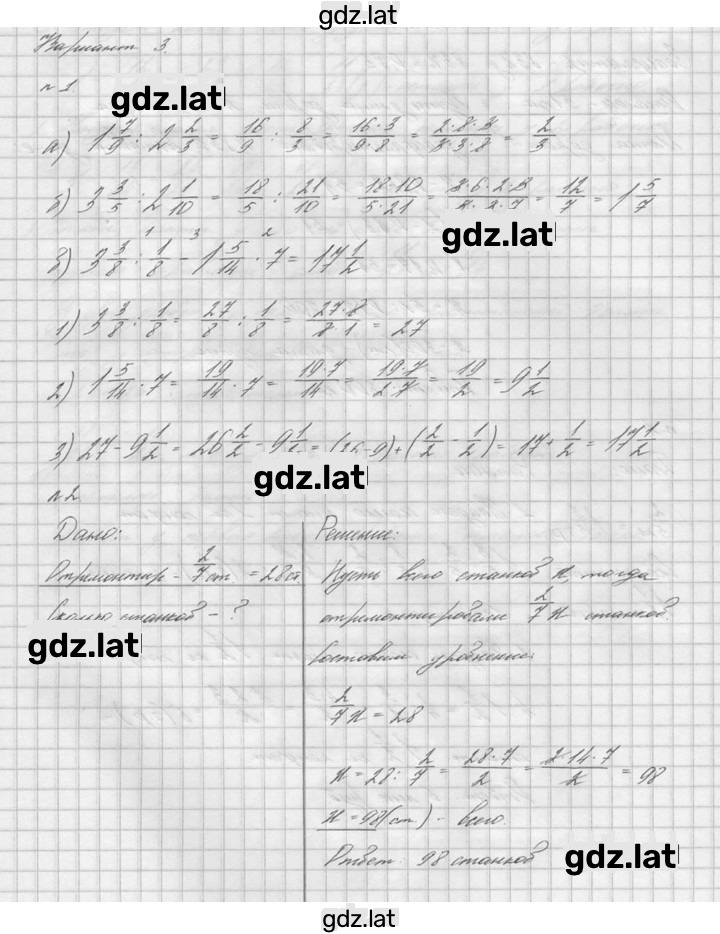 gdz.latl
Вариант 3.
№1
gdz.latl
а) 1 7/9 : 2 2/3 = 16/9 : 8/3 = 16·3/9·8 = 2·8·3/3·3·8 = 2/3
б) 3 3/5 : 2 1/10 = 18/5 : 21/10 = 18·10/5·21 = = 12/7 = 1 5/7
gdz.latl
в) 3 3/8 : 1/8 - 1 5/14 · 7 = 17 1/2
1) 3 3/8 : 1/8 = 27/8 : 1/8 = 27·8/8·1 = 27
2) 1 5/14 · 7 = 19/14 · 7 = 19·7/14 = 19·7/2·7 = 19/2 = 9 1/2
3) 27 - 9 1/2 = 26 2/2 - 9 1/2 = (26-9) + (2/2 - 1/2) = 17 + 1/2 = 17 1/2
gdz.latl
№2
Дано:
Отремонтир - 2/7 ст = 28 ст
Сколько станков - ?
gdz.latl
Решение:
Пусть всего станков x, тогда
отремонтировали 2/7 x станков.
Составим уравнение:
2/7 x = 28
x = 28 : 2/7 = 28·7/2 = 2·14·7/2 = 98
x = 98 (ст.) - всего.
Ответ: 98 станков
gdz.latl
gdz.latl